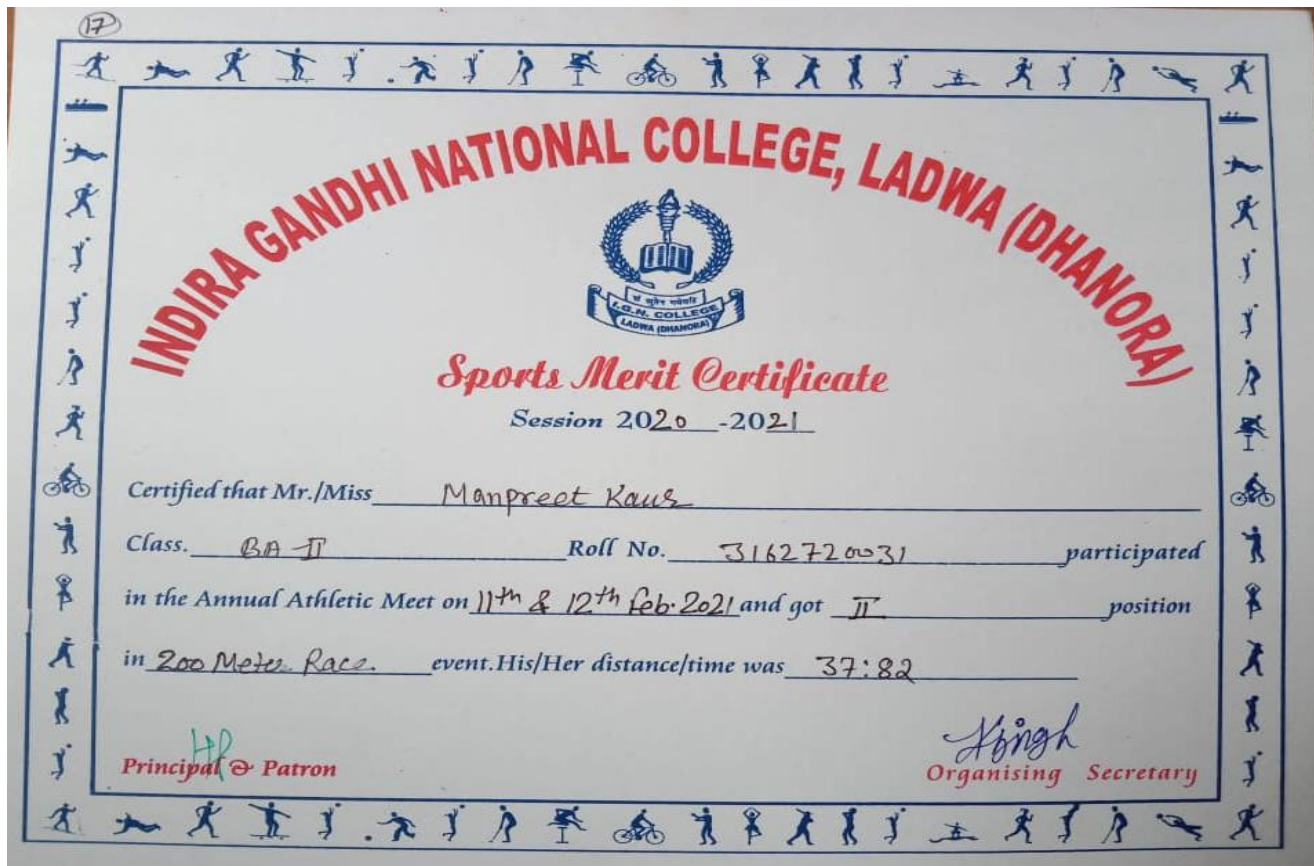 17
INDIRA GANDHI NATIONAL COLLEGE, LADWA (DHANORA)
I.G.N. COLLEGE
LADWA (DHANORA)
Sports Merit Certificate
Session 2020 -2021
Certified that Mr./Miss Manpreet Kaur
Class. BA-II Roll No. 3162720031 participated
in the Annual Athletic Meet on 11th & 12th Feb. 2021 and got II position
in 200 Meter Race. event.His/Her distance/time was 37:82
Principal & Patron
Organising Secretary